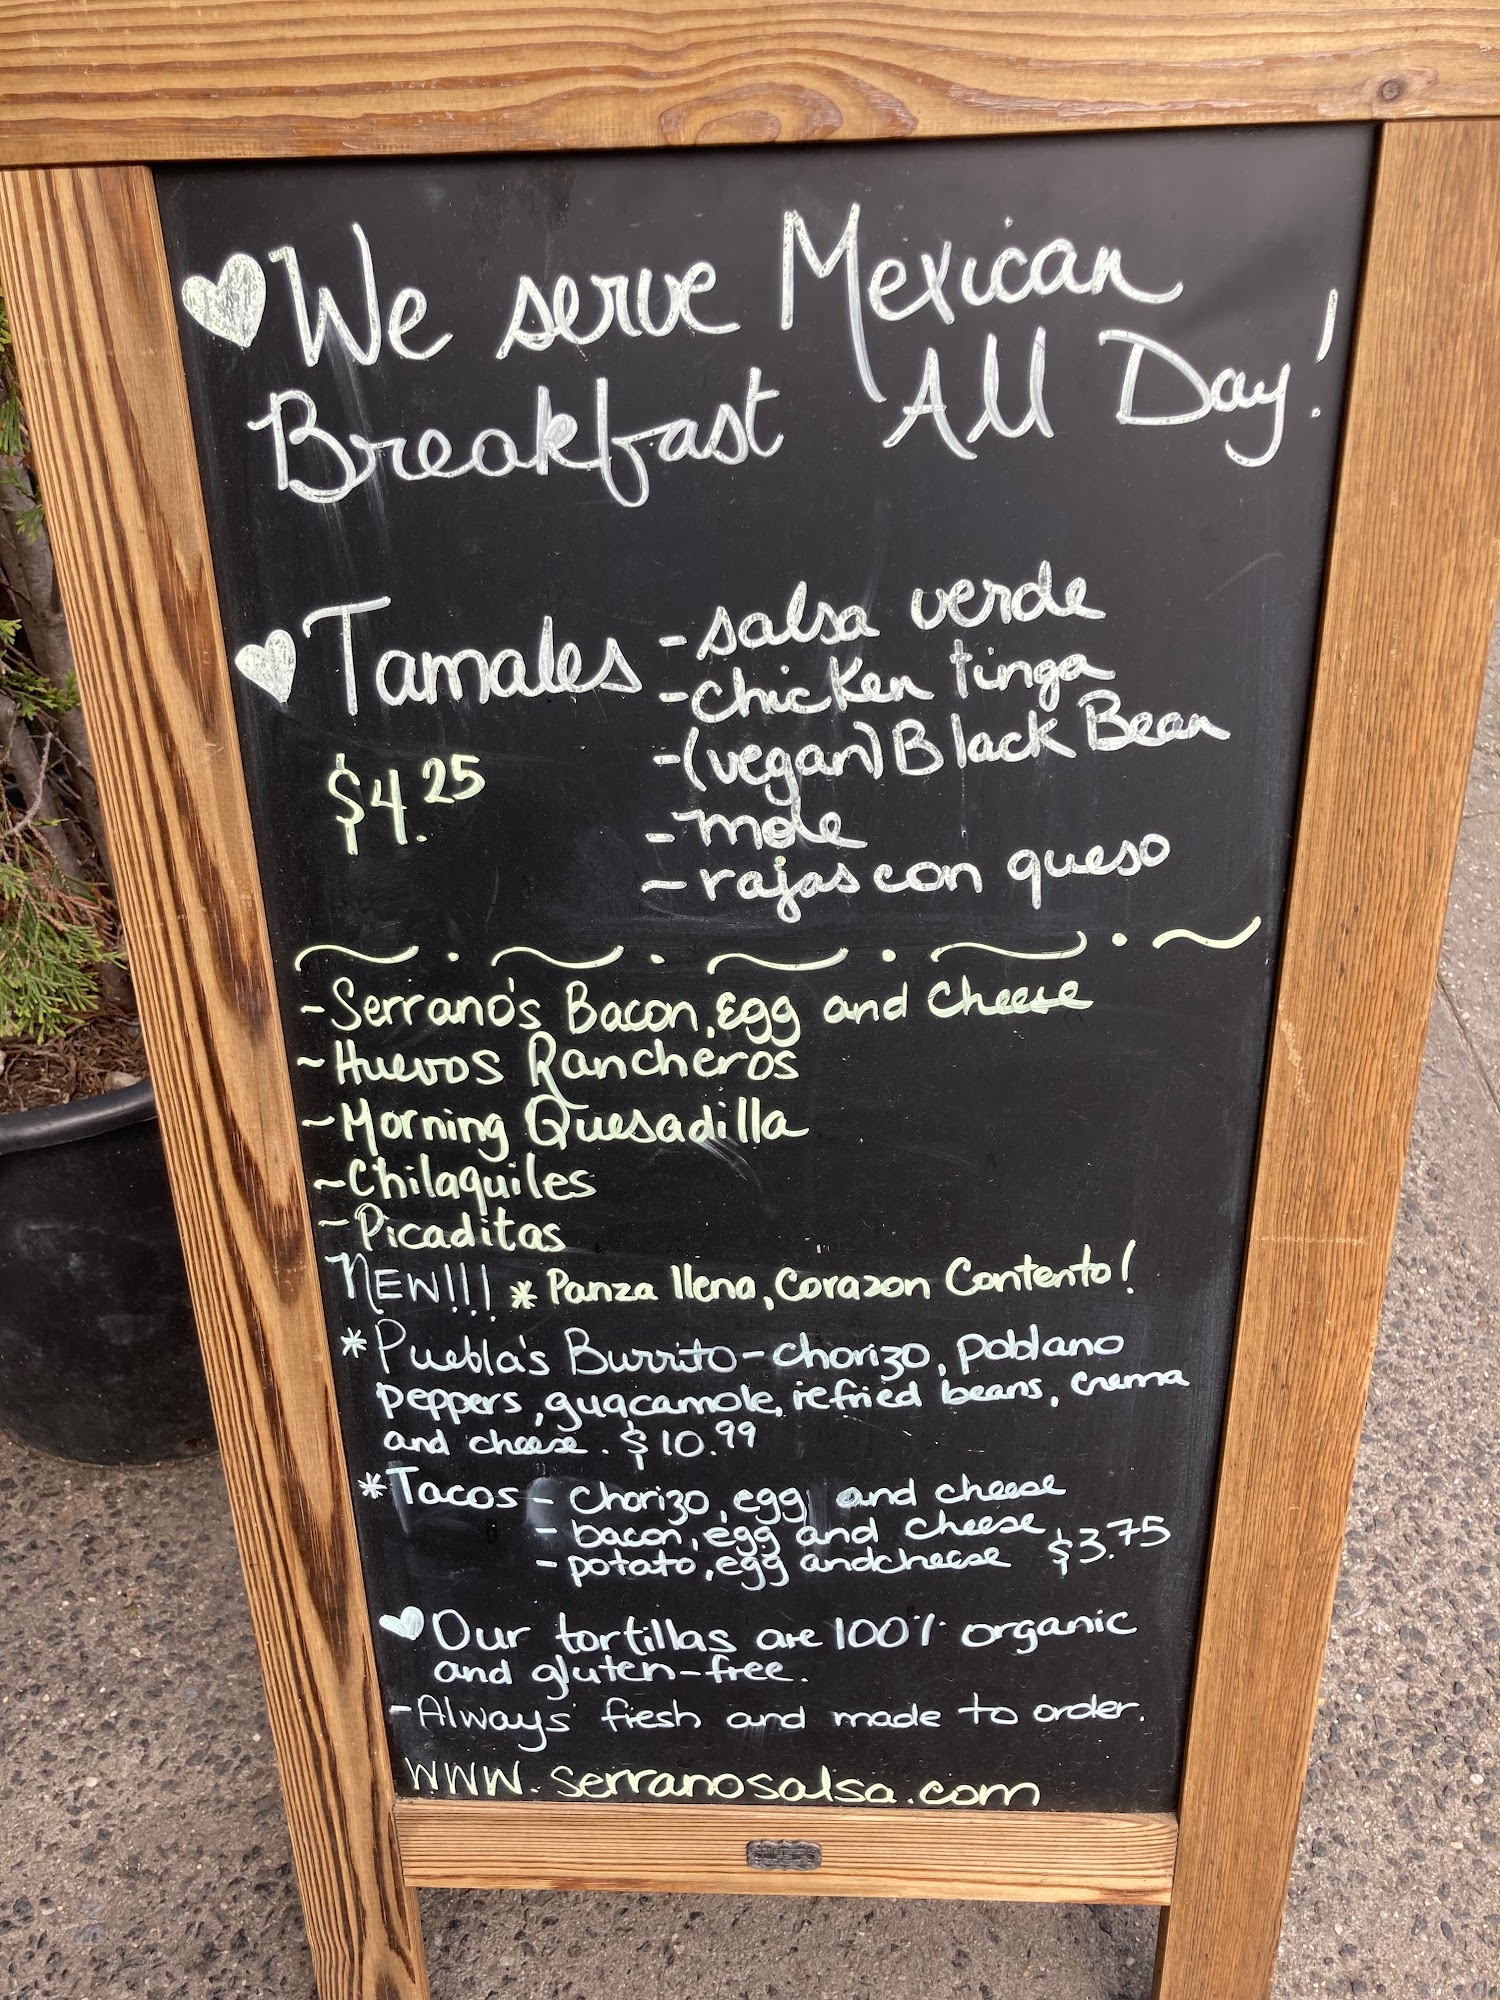 We serve Mexican
Breakfast All Day!
Tamales
$4.25
- salsa verde
- chicken tinga
- (vegan) Black Bean
- mole
- rajas con queso
- Serrano's Bacon, Egg and Cheese
~ Huevos Rancheros
~ Morning Quesadilla
~ Chilaquiles
~ Picaditas
NEW!!! * Panza llena, Corazon Contento!
* Puebla's Burrito - chorizo, poblano
peppers, guacamole, refried beans, crema
and cheese. $10.99
* Tacos - chorizo, egg and cheese
- bacon, egg and cheese
- potato, egg and cheese $3.75
Our tortillas are 100% organic
and gluten-free.
- Always fresh and made to order.
www.serranosalsa.com